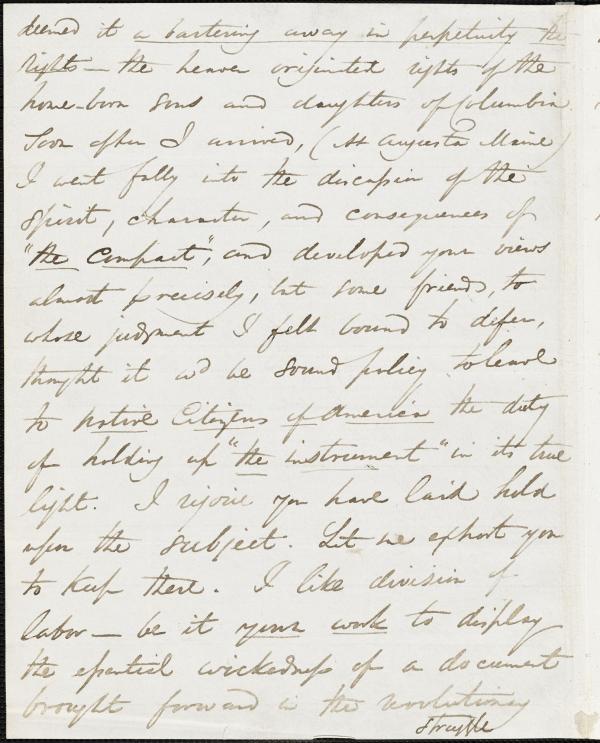 deemed it a bartering away in perpetuity the
rights — the heaven originated rights of the
home-born sons and daughters of Columbia.
Soon after I arrived, (At Augusta Maine)
I went fully into the discussion of the
spirit, character, and consequences of
"the compact", and developed your views
almost precisely, but some friends, to
whose judgment I felt bound to defer,
thought it wd be sound policy to leave
to native Citizens of America the duty
of holding up "the instrument" in its true
light. I rejoice you have laid hold
upon the subject. Let me exhort you
to keep there. I like division of
labor — be it your work to display
the essential wickedness of a document
brought forward in the revolutionary
struggle